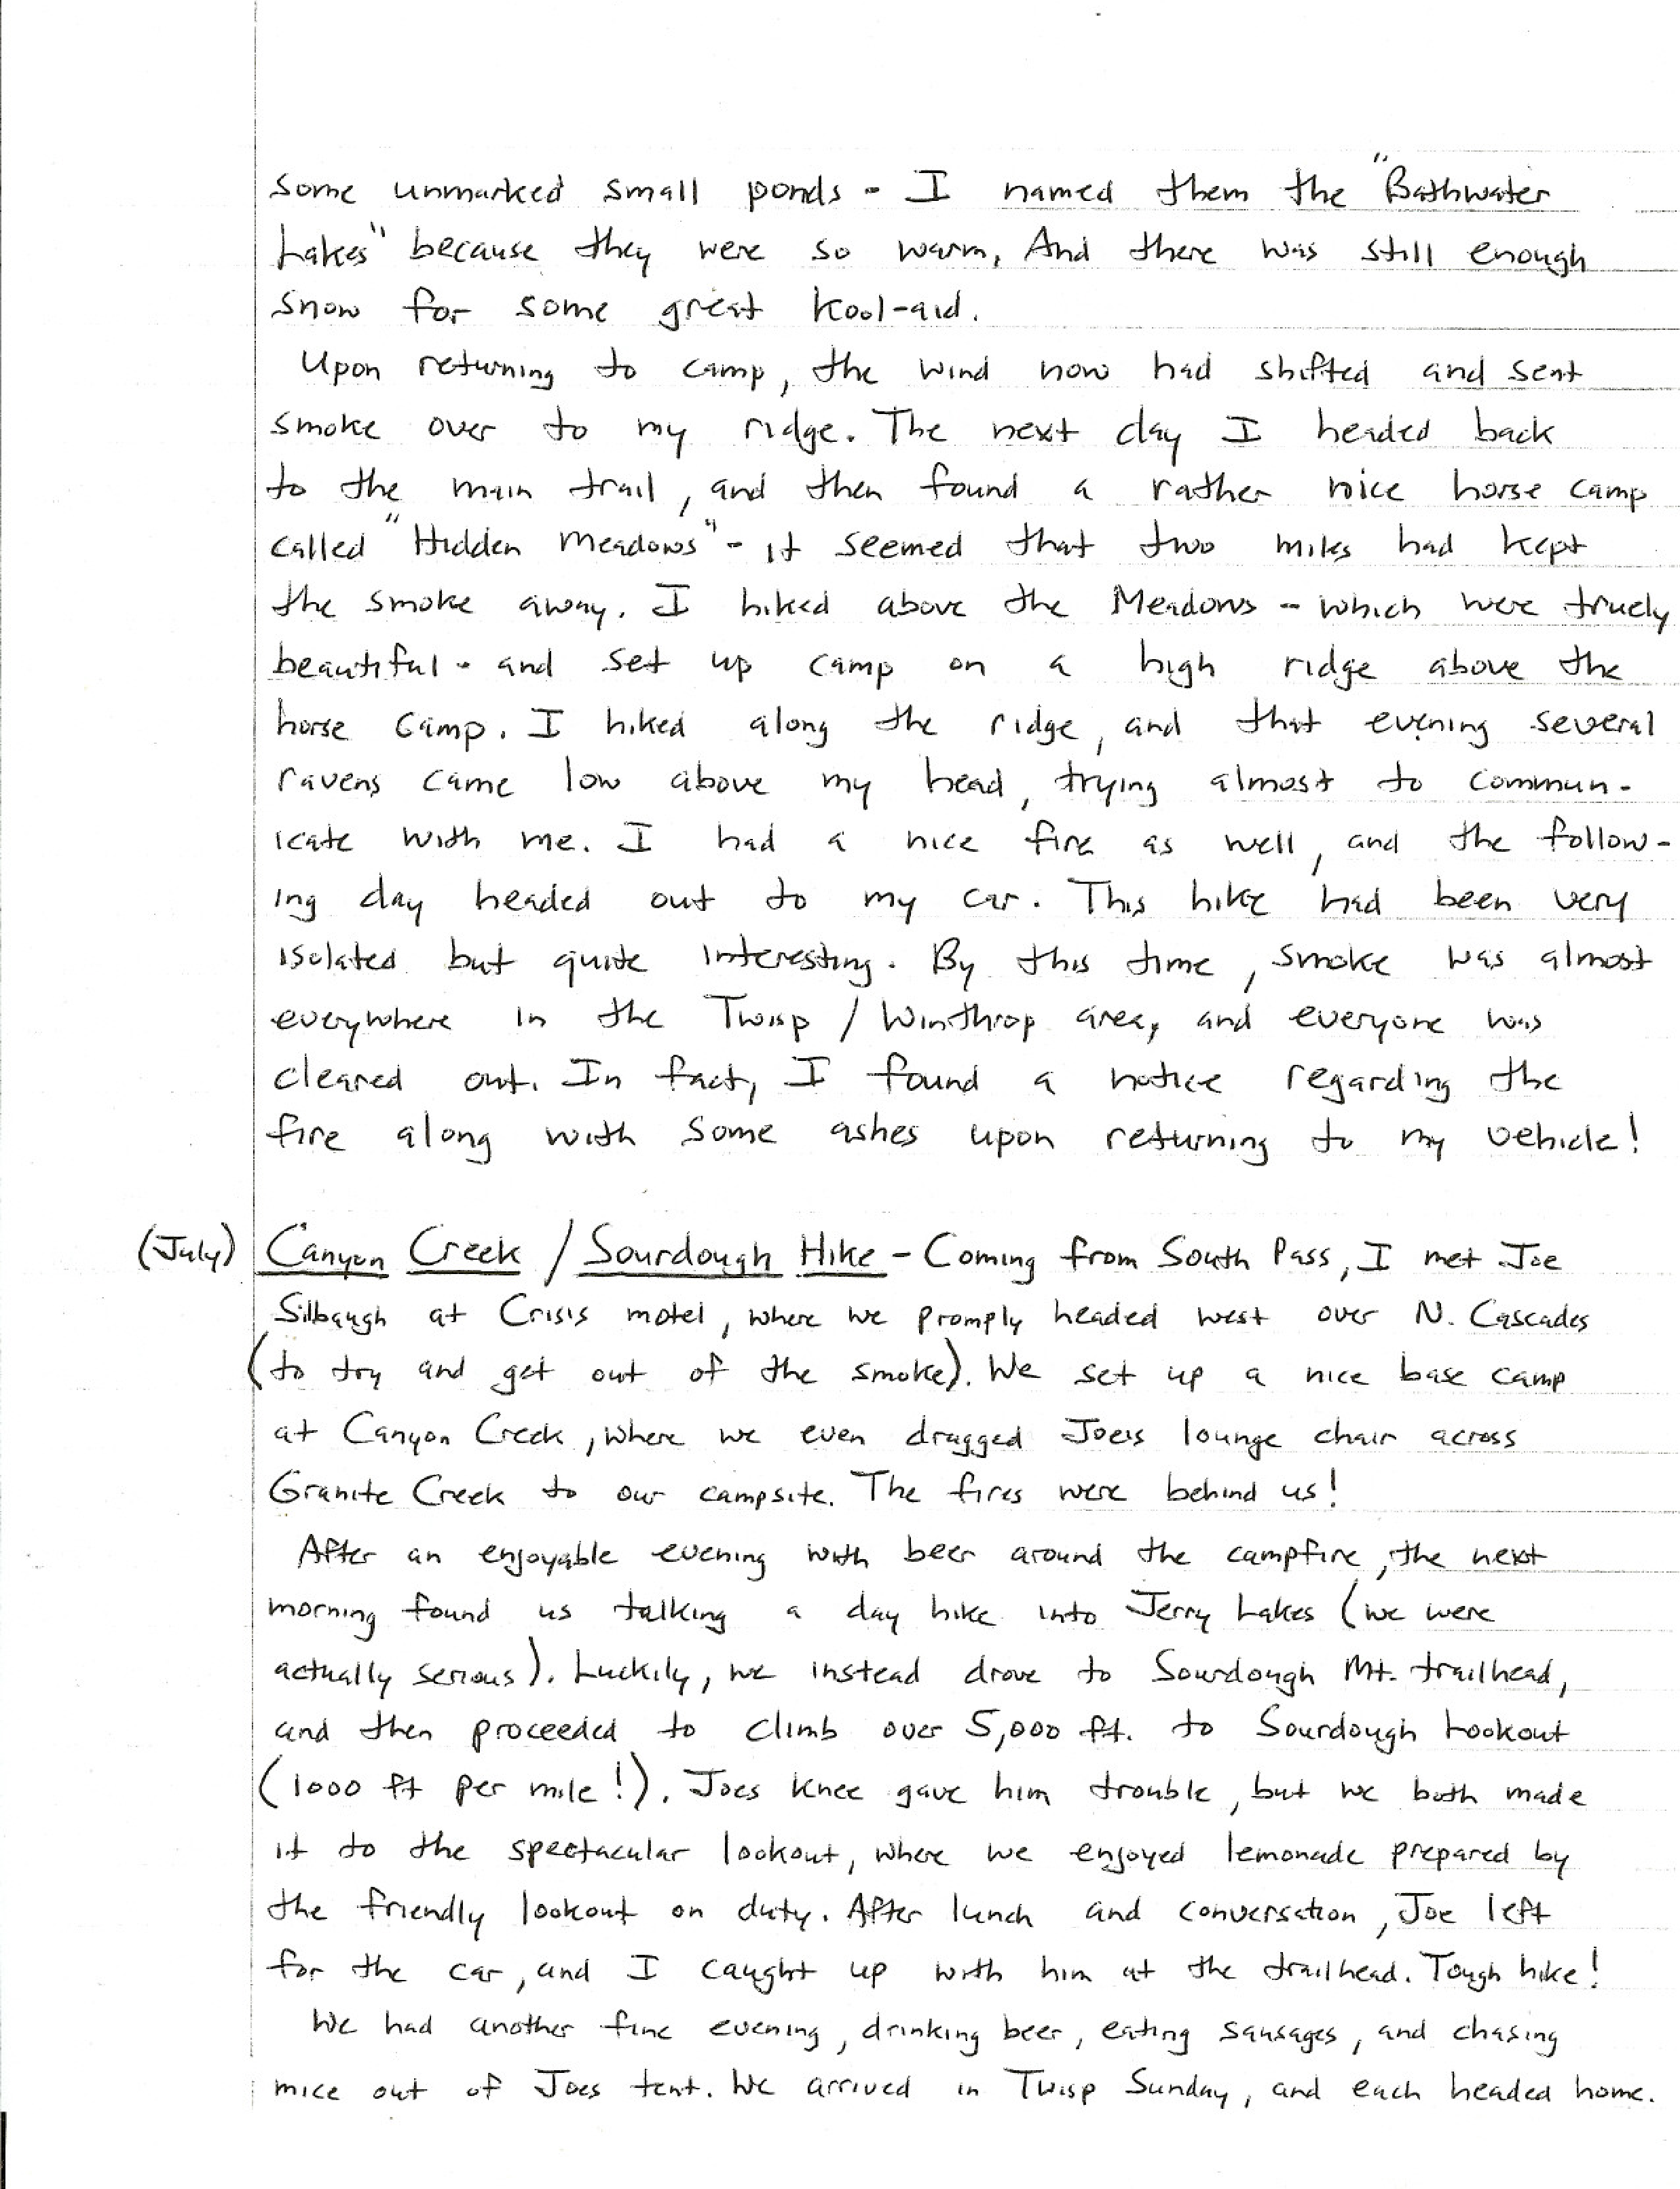 some unmarked small ponds - I named them the "Bathwater
Lakes" because they were so warm. And there was still enough
snow for some great kool-aid.
Upon returning to camp, the wind now had shifted and sent
smoke over to my ridge. The next day I headed back
to the main trail, and then found a rather nice horse camp
called "Hidden Meadows" - it seemed that two miles had kept
the smoke away. I hiked above the Meadows - which were truely
beautiful - and set up camp on a high ridge above the
horse camp. I hiked along the ridge, and that evening several
ravens came low above my head, trying almost to commun-
icate with me. I had a nice fire as well, and the follow-
ing day headed out to my car. This hike had been very
isolated but quite interesting. By this time, smoke was almost
everywhere in the Twisp / Winthrop area, and everyone was
cleared out. In fact, I found a notice regarding the
fire along with some ashes upon returning to my vehicle!
(July) Canyon Creek / Sourdough Hike - Coming from South Pass, I met Joe
Silbaugh at Crisis motel, where we promply headed west over N. Cascades
(to try and get out of the smoke). We set up a nice base camp
at Canyon Creek, where we even dragged Joes lounge chair across
Granite Creek to our campsite. The fires were behind us!
After an enjoyable evening with beer around the campfire, the next
morning found us talking a day hike into Jerry Lakes (we were
actually serious). Luckily, we instead drove to Sourdough Mt. trailhead,
and then proceeded to climb over 5,000 ft. to Sourdough Lookout
(1000 ft per mile!). Joes knee gave him trouble, but we both made
it to the spectacular lookout, where we enjoyed lemonade prepared by
the friendly lookout on duty. After lunch and conversation, Joe left
for the car, and I caught up with him at the trailhead. Tough hike!
We had another fine evening, drinking beer, eating sausages, and chasing
mice out of Joes tent. We arrived in Twisp Sunday, and each headed home.